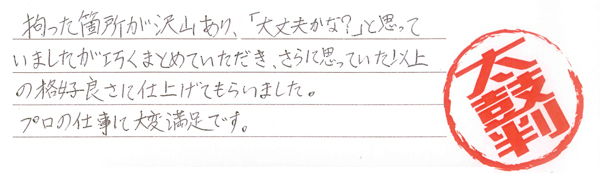 拘った箇所が沢山あり、「大丈夫かな?」と思って
いましたが巧くまとめていただき、さらに思っていた以上
の格好良さに仕上げてもらいました。
プロの仕事に大変満足です。
太鼓判